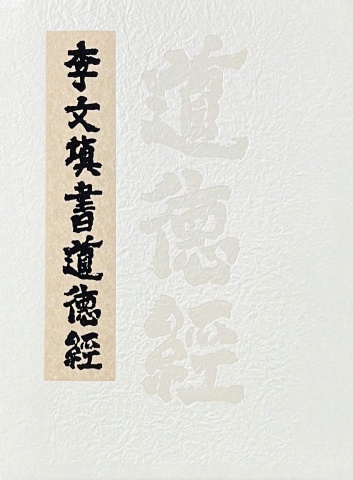 道德經
李文填書道德經